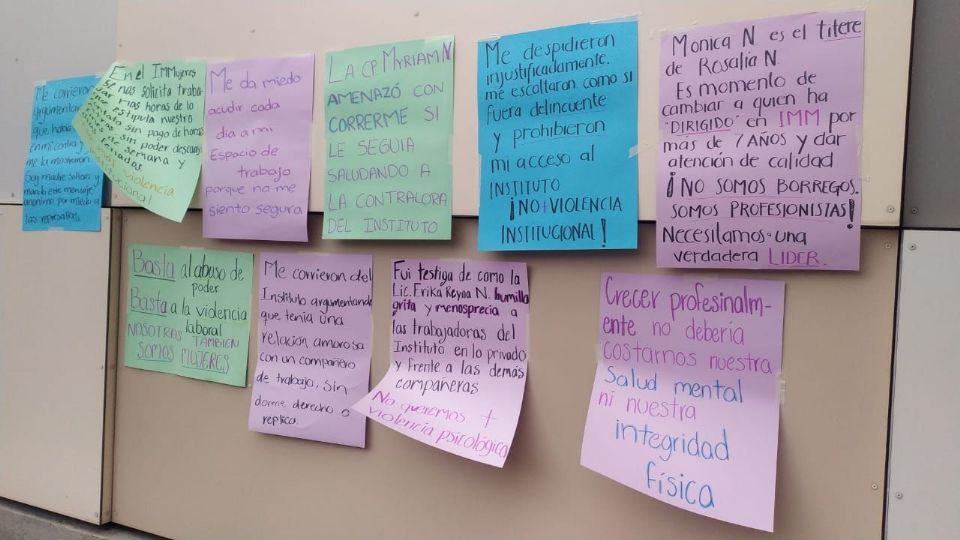 Me corrieron
argumentan
que había
en mi contra y
me la mostraron
Soy madre soltera y
mando este mensaje
anónimo por miedo a
las represalias
En el IMMujeres
SI nos solicita traba-
jar mas horas de lo
que estipula nuestro
sin pago de horas
sin poder descans
de semana y
violencia
Me da miedo
acudir cada
día a mi
Espacio de
trabajo
porque no me
siento segura
LA CP MYRIAM N
AMENAZÓ CON
CORRERME SI
LE SEGUIA
SALUDANDO A
LA CONTRALORA
DEL INSTITUTO
Me despidieron
injustificadamente.
me escoltaron como si
fuera delincuente
y prohibieron
mi acceso al
INSTITUTO
¡NO + VIOLENCIA
INSTITUCIONAL!
Monica N. es el titere
de Rosalía N.
Es momento de
cambiar a quien ha
"DIRIGIDO" en IMM por
más de 7 AÑOS y dar
atención de calidad
¡NO SOMOS BORREGOS.
SOMOS PROFESIONISTAS!
Necesitamos una
verdadera LIDER.
Basta al abuso de
poder
Basta a la violencia
laboral
NOSOTRAS TAMBIEN
SOMOS MUJERES
Me corrieron del
Instituto argumentando
que tenia una
relación amorosa
con un compañero
de trabajo, sin
darme derecho a
replica.
Fui testiga de como la
Lic. Erika Reyna N. humilla
grita y menosprecia a
las trabajadoras del
Instituto en lo privado
y frente a las demás
compañeras
No queremos +
violencia psicológica
Crecer profesinalm-
ente no debería
costarnos nuestra
Salud mental
ni nuestra
integridad
física